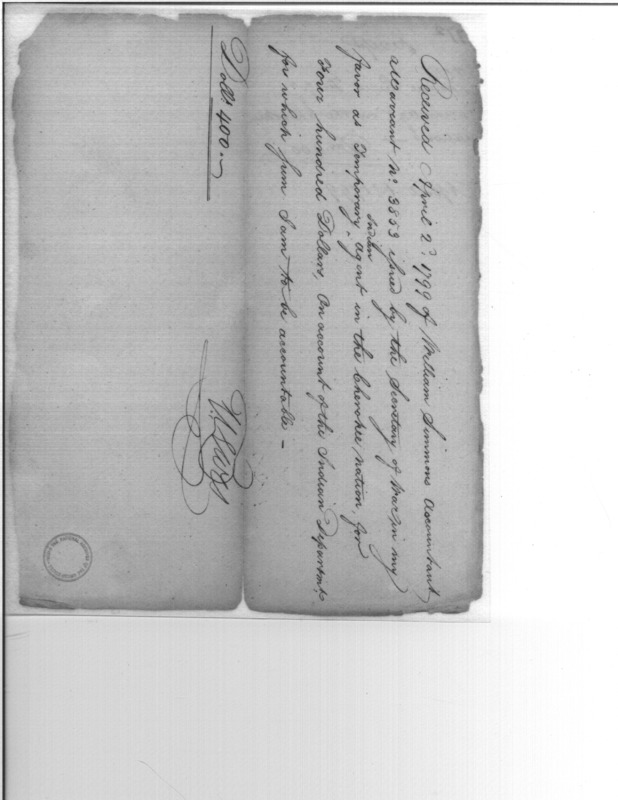 Received April 2d. 1799 of William Simmons Accountant
a Warrant No. 3853 issued by the Secretary of War in my
favor as Temporary Indian agent in the Cherokee nation, for
Four hundred Dollars, On account of the Indian Department
for which sum I am to be accountable -
Dolls 400.~